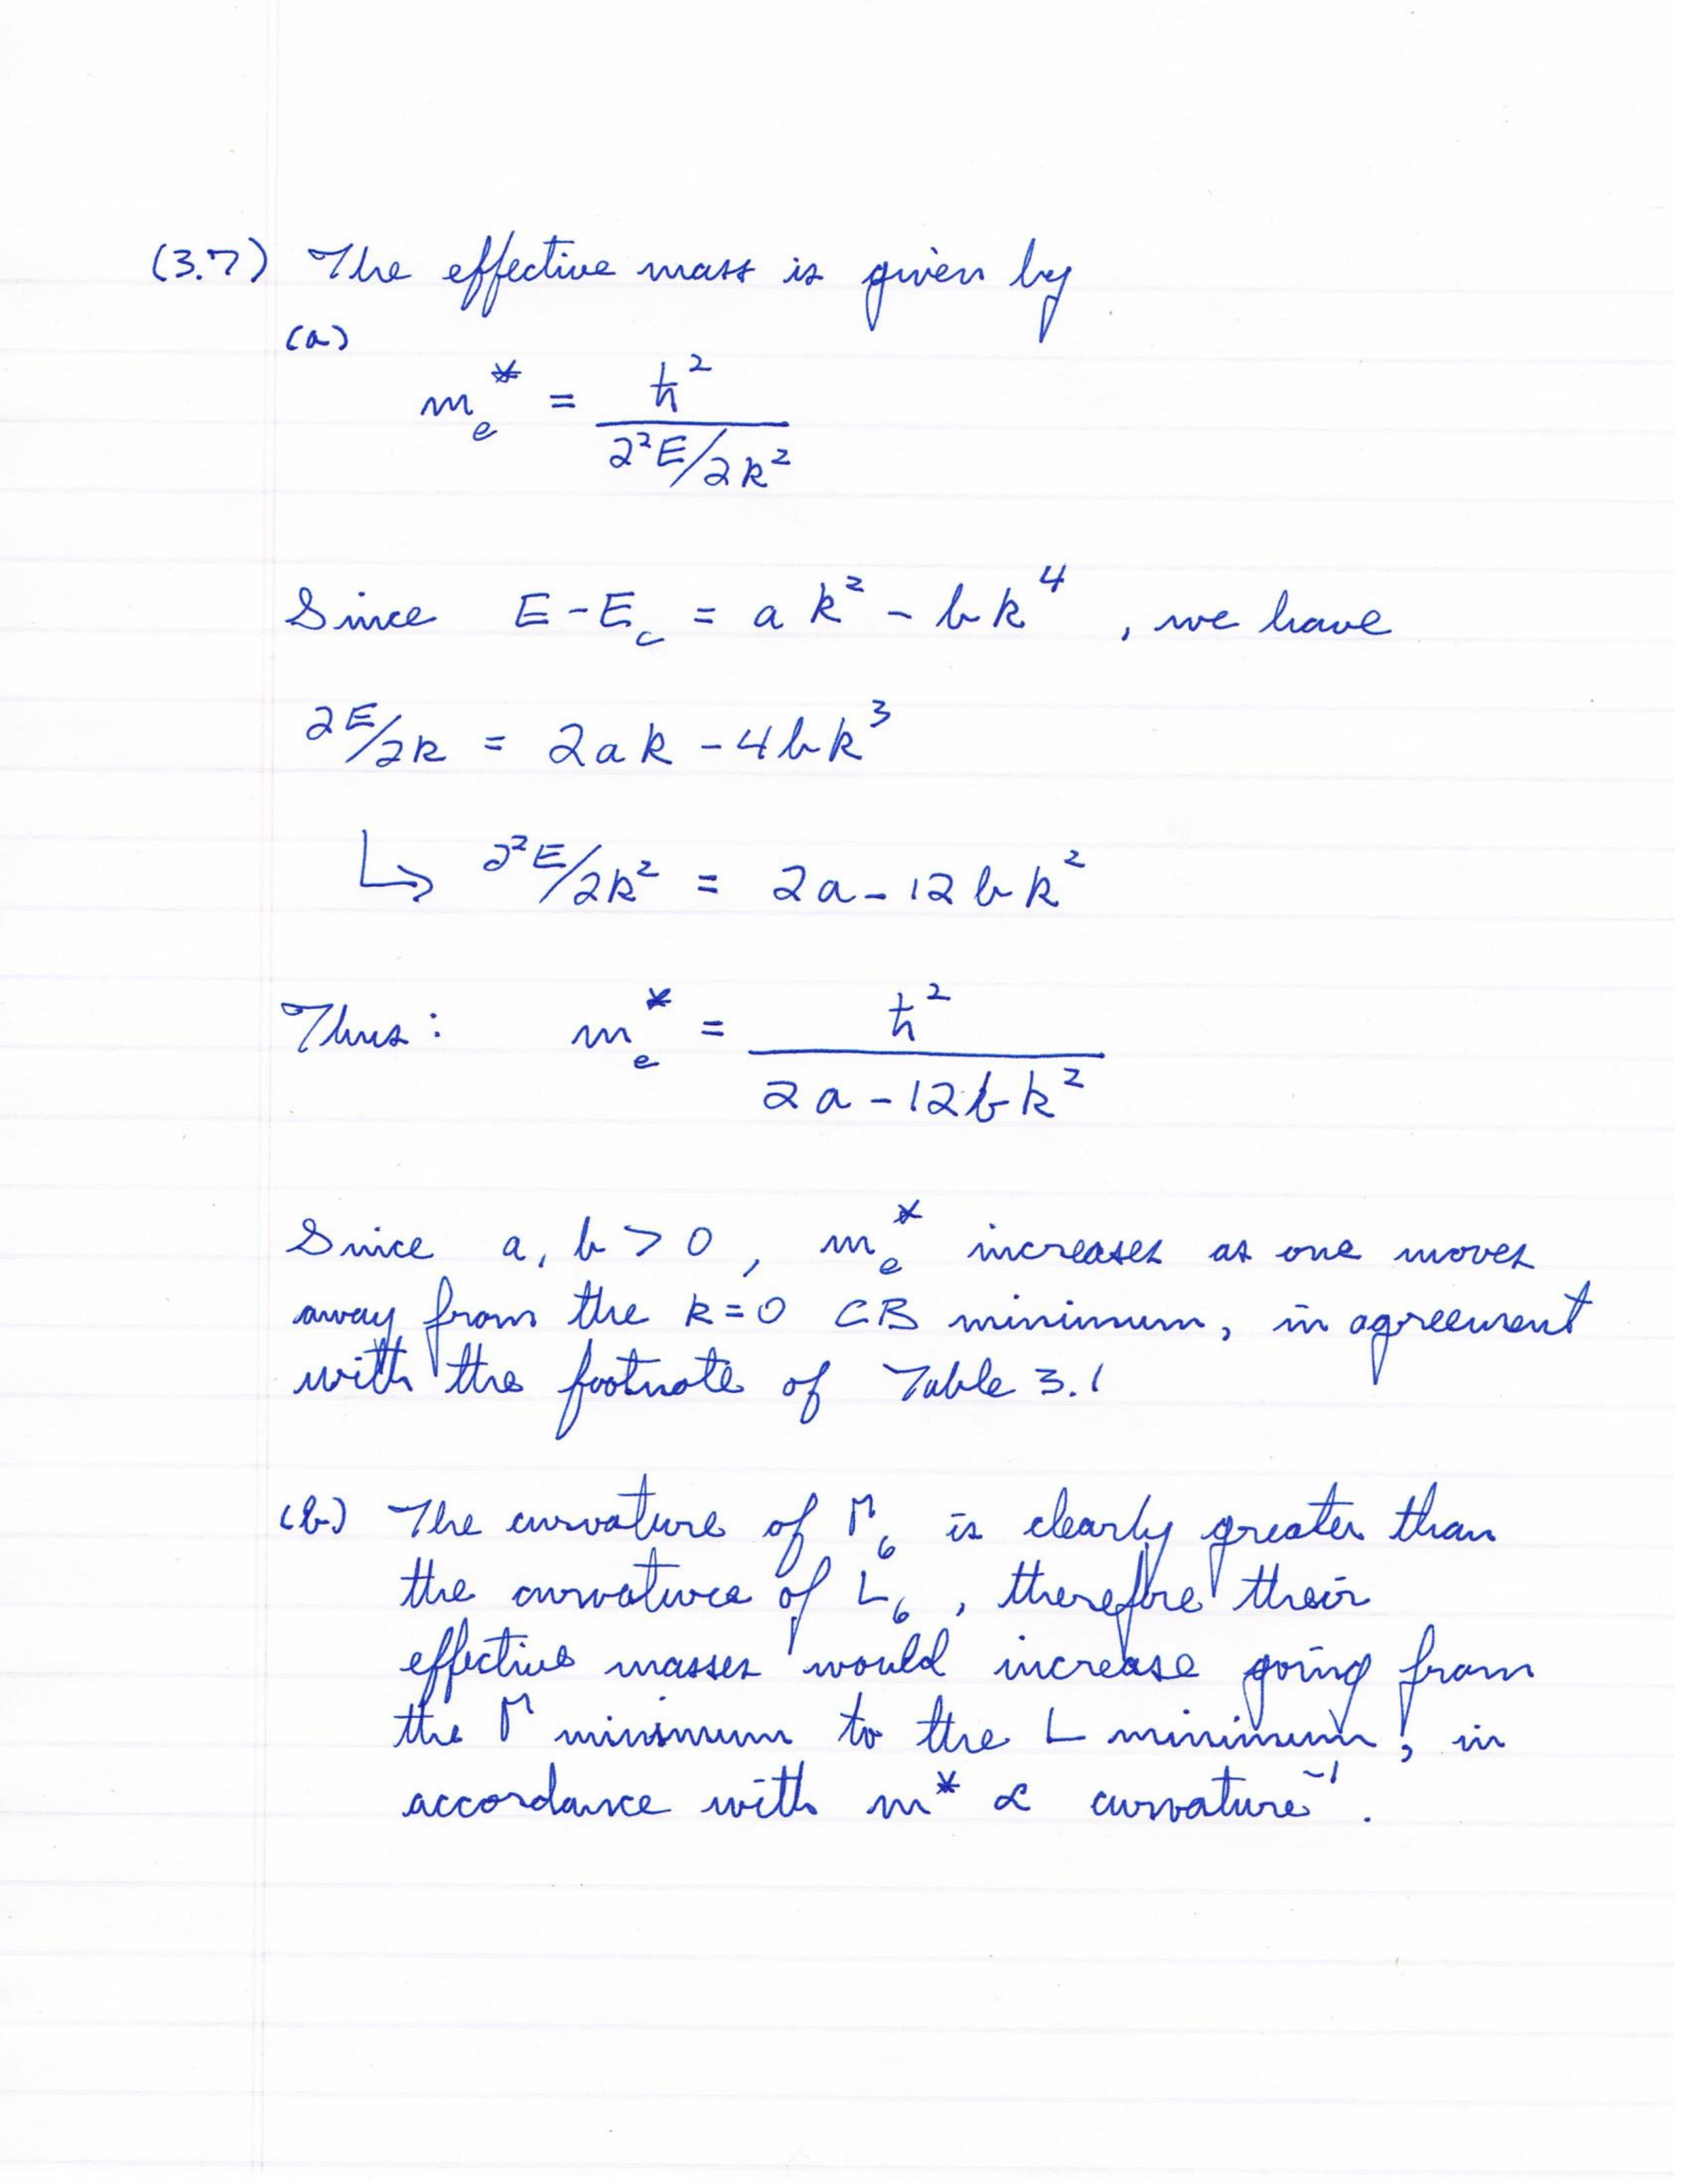 (3.7) The effective mass is given by
(a)
m_e^* = ħ² / (∂²E/∂k²)
Since E - E_c = ak² - bk⁴, we have
∂E/∂k = 2ak - 4bk³
↳ ∂²E/∂k² = 2a - 12bk²
Thus: m_e^* = ħ² / (2a - 12bk²)
Since a, b > 0, m_e^* increases as one moves
away from the k=0 CB minimum, in agreement
with the footnote of Table 3.1
(b) The curvature of Γ₆ is clearly greater than
the curvature of L₆, therefore their
effective masses would increase going from
the Γ minimum to the L minimum, in
accordance with m* ∝ curvature⁻¹.